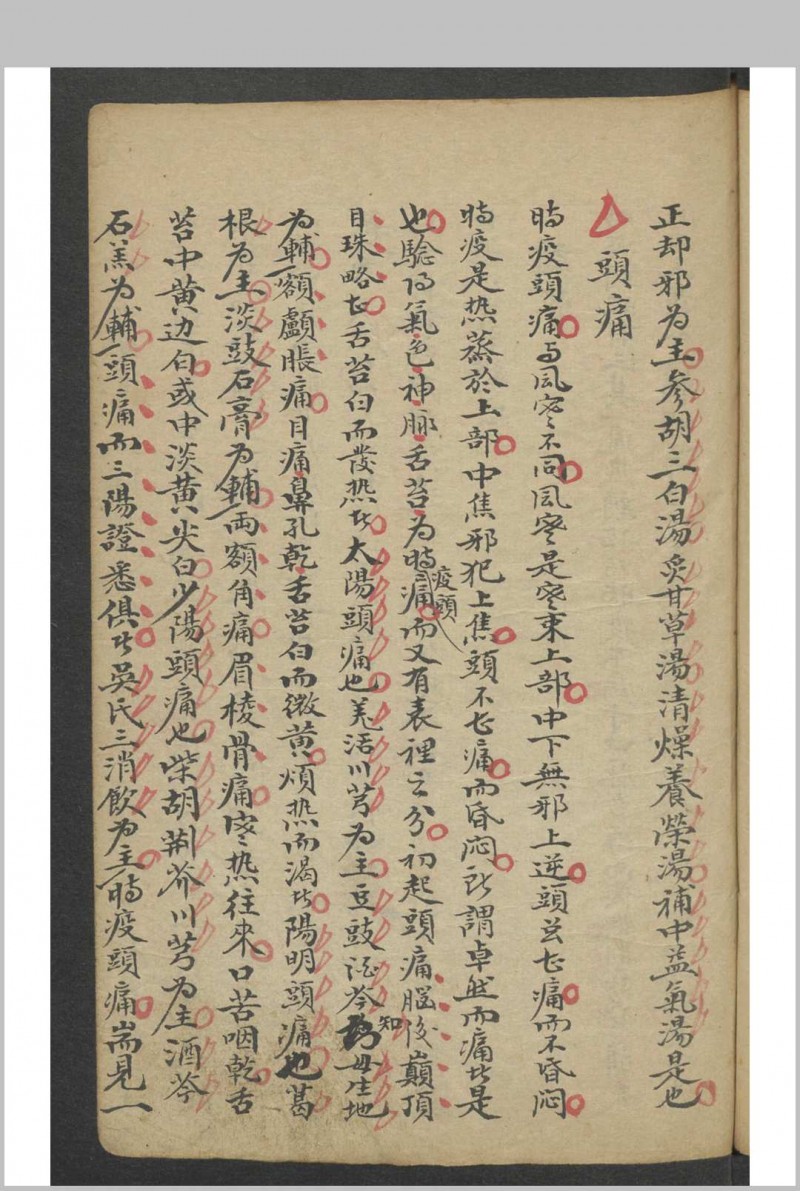 正却邪为主参胡三白湯炙甘草湯清燥養榮湯補中益氣湯是也
頭痛
時疫頭痛与風寒不同風寒是寒束上部中下無邪上逆頭〻甚痛而不昏悶
時疫是热蒸於上部中焦邪犯上焦頭不甚痛而昏悶所謂卓然而痛此是
也驗得氣色神脉舌苔为時疫頭痛而又有表裡之分初起頭痛脳後巔頂
目珠略甚舌苔白而發热此太陽頭痛也羌活川芎为主豆豉酒芩知母生地
为輔額顱脹痛目痛鼻孔乾舌苔白而微黄煩热而渴此陽明頭痛也葛
根为主淡豉石膏为輔両額角痛眉棱骨痛寒热往來口苦咽乾舌
苔中黄边白或中淡黄尖白少陽頭痛也柴胡荆芥川芎为主酒芩
石羔为輔頭痛而三陽證悉俱此吳氏三消飲为主時疫頭痛耑見一